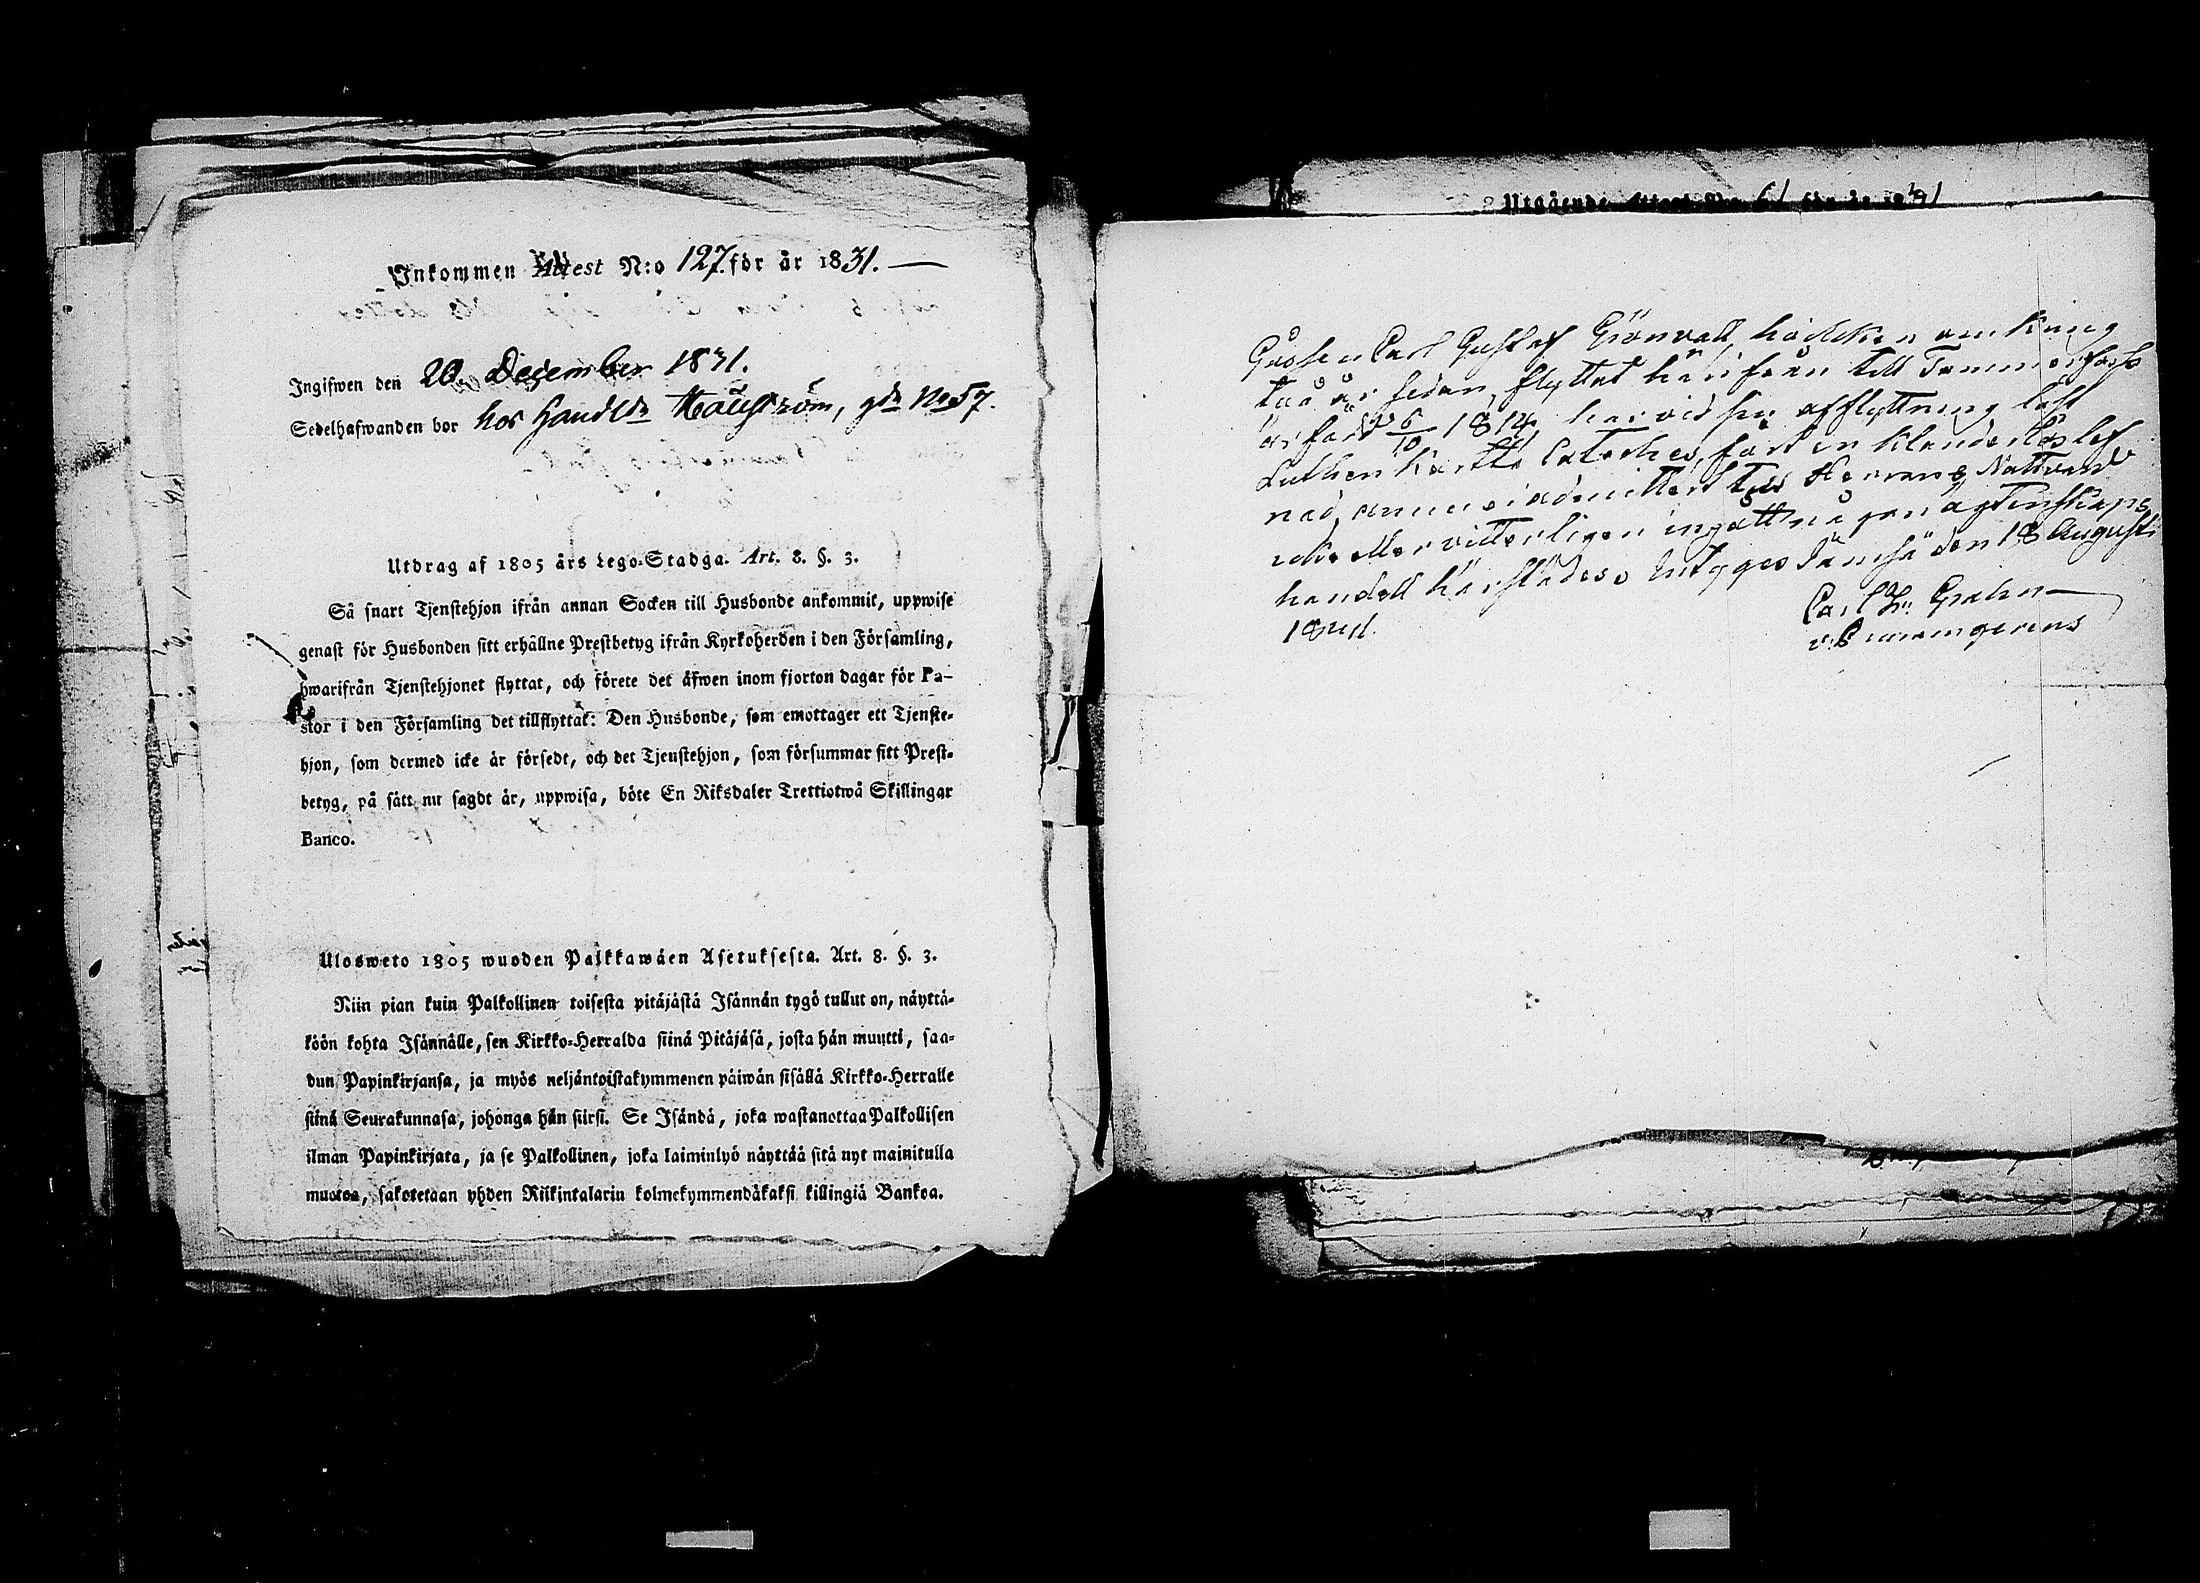 Inkommen Attest N:o 127. för år 1831.
Ingifwen den 20 December 1831.
Sedelhafwanden bor hos Handldn Häggström, gdn No 57.
Utdrag af 1805 års Lego-Stadga. Art. 8. §. 3.
Så snart Tjenstehjon ifrån annan Socken till Husbonde ankommit, uppwise
genast för Husbonden sitt erhällne Prestbetyg ifrån Kyrkoherden i den Församling,
hwarifrån Tjenstehjonet flyttat, och förete det äfwen inom fjorton dagar för Pa-
stor i den Församling det tillflyttat: Den Husbonde, som emottager ett Tjenste-
hjon, som dermed icke är försedt, och det Tjenstehjon, som försummar sitt Prest-
betyg, på sätt nu sagdt är, uppwisa, böte En Riksdaler Trettiotwå Skillingar
Banco.
Ulosweto 1805 wuoden Palkkawäen Asetuksesta. Art. 8. §. 3.
Niin pian kuin Palkollinen toisesta pitäjästä Isännän tygö tullut on, näyttä-
köön kohta Isännälle, sen Kirkko-Herralda siinä Pitäjäsä, josta hän muutti, saa-
dun Papinkirjansa, ja myös neljäntoistakymmenen päiwän sisällä Kirkko-Herralle
siinä Seurakunnasa, johonga hän siirsi. Se Isändä, joka wastanottaa Palkollisen
ilman Papinkirjata, ja se Palkollinen, joka laiminlyö näyttää sitä nyt mainitulla
muotoa, sakotetaan yhden Riikintalarin kolmekymmendäkaksi killingiä Bankoa.
Utgående Attest No 61 för år 1841
Gossen Carl Gustaf Grönvall, hvilken omkring
två år sedan, flyttat härifrån till Tammerfors
är född 6/10 1814, har vid sin afflyttning läst
Lutheri Korta Cateches, fört en klanderlös lef
nad, annu ei admitterd till Herrans Nattvard
icke eller vitterligen ingått någon ägtenskaps
handell härstädes. Intygges Jämsä den 18 Augusti
1841.
Carl Gr. Grahn
v. Commingerens